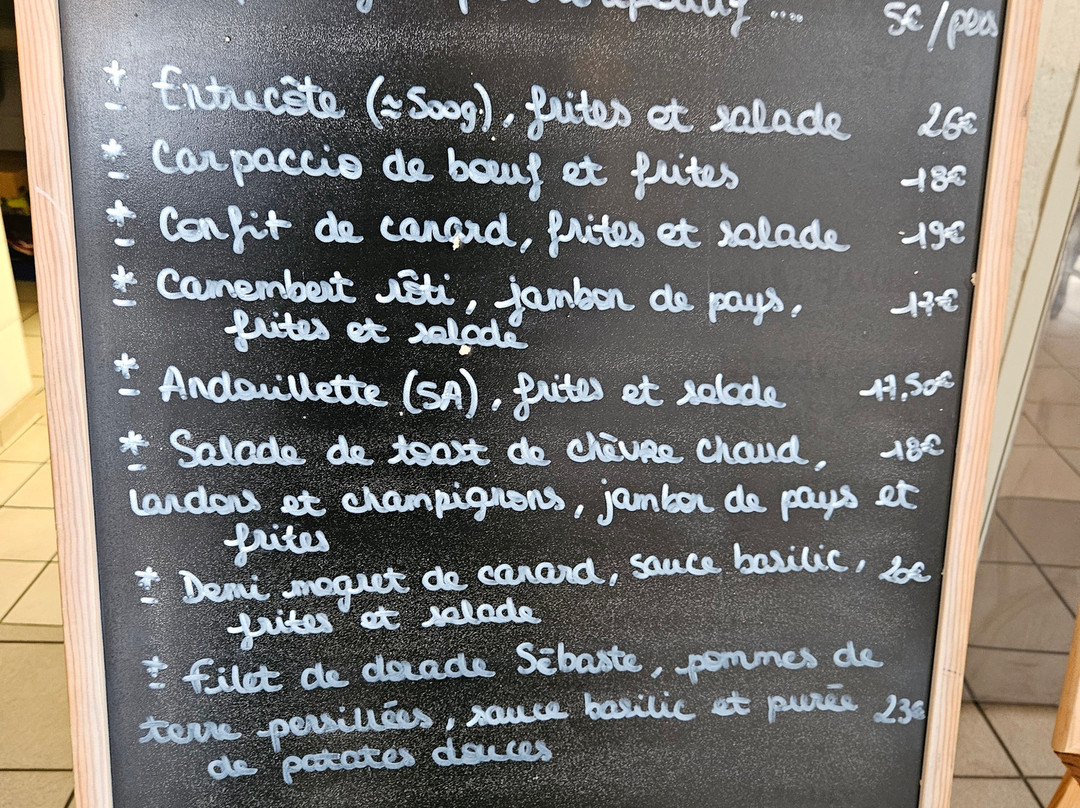 5€/pers
* Entrecôte (≈500g), frites et salade 26€
* Carpaccio de bœuf et frites 18€
* Confit de canard, frites et salade 19€
* Camembert rôti, jambon de pays, 17€
frites et salade
* Andouillette (5A), frites et salade 17,50€
* Salade de toast de chèvre chaud, 18€
lardons et champignons, jambon de pays et
frites
* Demi magret de canard, sauce basilic, 20€
frites et salade
* Filet de dorade Sébaste, pommes de
terre persillées, sauce basilic et purée 23€
de patates douces